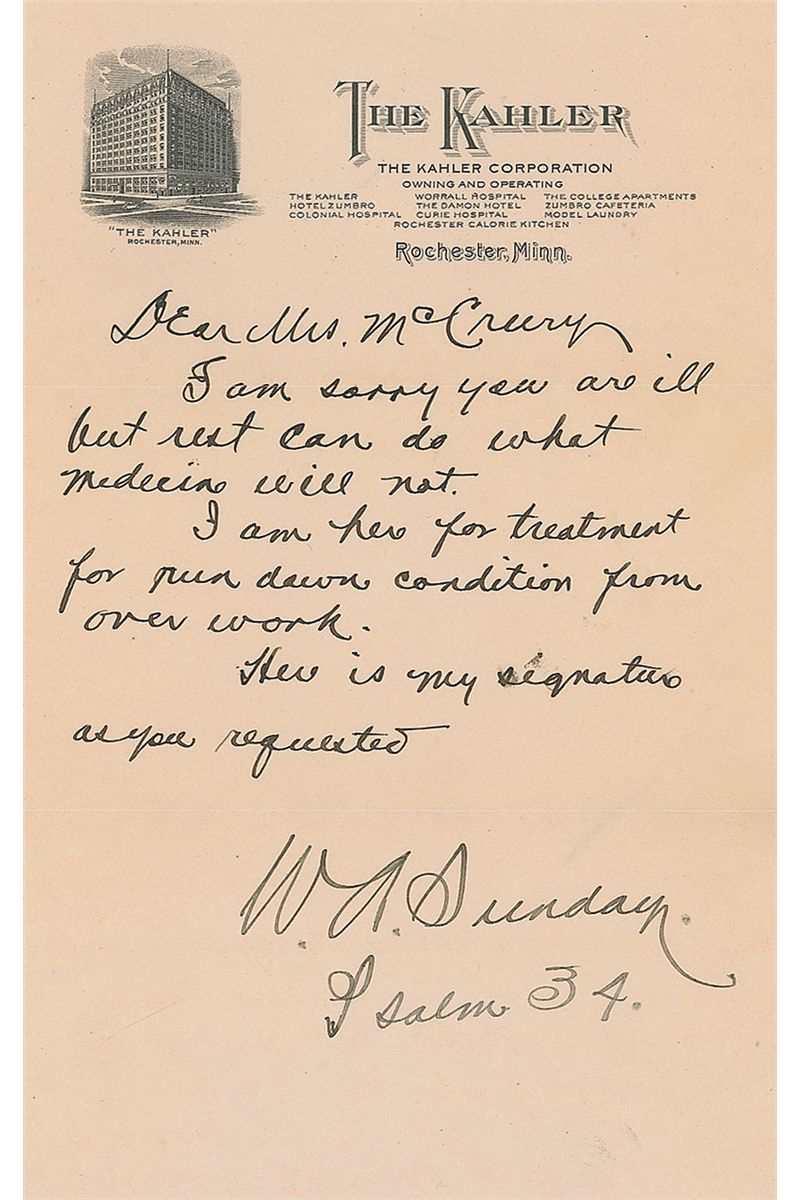 THE KAHLER
THE KAHLER CORPORATION
OWNING AND OPERATING
THE KAHLER WORRALL HOSPITAL THE COLLEGE APARTMENTS
HOTEL ZUMBRO THE DAMON HOTEL ZUMBRO CAFETERIA
COLONIAL HOSPITAL CURIE HOSPITAL MODEL LAUNDRY
ROCHESTER CALORIE KITCHEN
Rochester, Minn.
"THE KAHLER"
ROCHESTER, MINN.
Dear Mrs. McCreery
I am sorry you are ill
but rest can do what
medecine will not.
I am here for treatment
for run down condition from
over work.
Here is my signature
as you requested
W. A. Sunday.
Psalm 34.